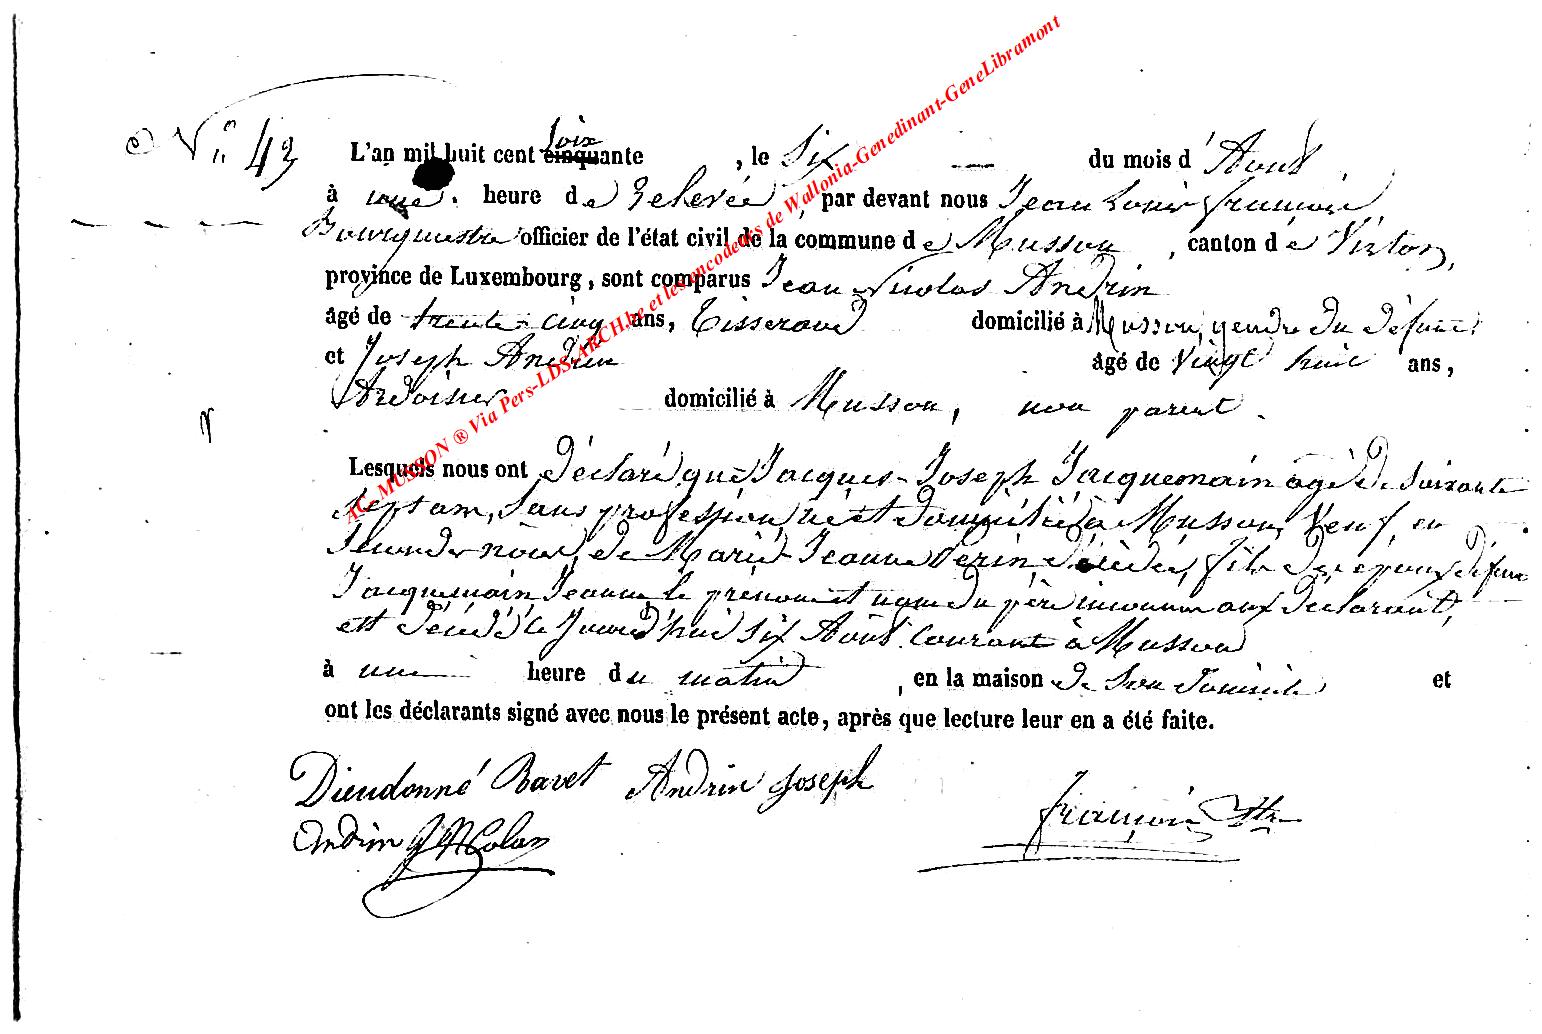 N° 43
L'an mil huit cent soixante, le Six du mois d'Août
à une heure de Relevée, par devant nous Jean Louis françois
Bourgmestre officier de l'état civil de la commune de Musson, canton de Virton,
province de Luxembourg, sont comparus Jean Nicolas Andrin
âgé de trente-cinq ans, Tisserand domicilié à Musson, gendre du défunt
et Joseph Andrin âgé de Vingt huit ans,
Ardoisier domicilié à Musson, non parent.
Lesquels nous ont déclaré que Jacques-Joseph Jacquemain âgé de Soixante
sept ans, Sans profession, né et domicilié à Musson, Veuf, en
Secondes nôces, de Marie Jeanne Perin, décédée, fils des époux défunt
Jacquemain Jeanne le prénom et nom du père inconnu aux déclarants,
est décédé le Jourd'hui Six Août courant à Musson
à une heure du matin, en la maison de Son domicile et
ont les déclarants signé avec nous le présent acte, après que lecture leur en a été faite.
Dieudonné Bavet Andrin Joseph
Andrin J Nicolas
françois
AC-MUSSON ® Via Pers-LDS-ARCH.be et les encodeurs de Wallonia-Genedinant-GeneLibramont